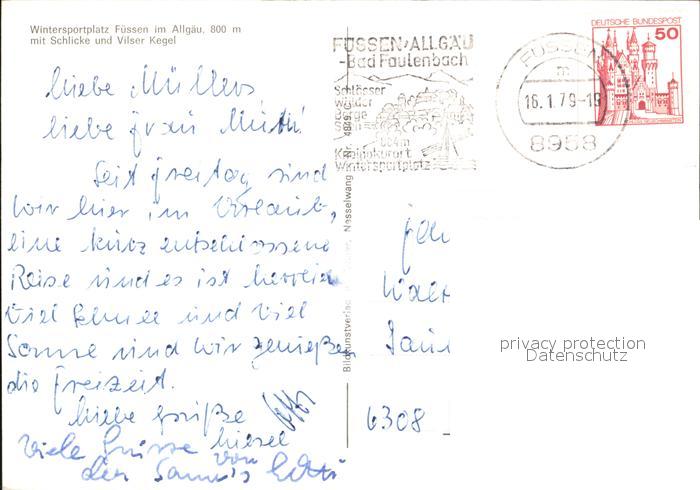 Wintersportplatz Füssen im Allgäu, 800 m
mit Schlicke und Vilser Kegel
liebe Müllers
liebe Frau
Seit Freitag sind
wir hier im Urlaub,
eine kurz entschlossene
Reise und es ist herrlich
Viel Schnee und viel
Sonne und wir genießen
die Freizeit.
liebe Grüße
Viele Grüsse
von
der
FÜSSEN/ALLGÄU
-Bad Faulenbach
Schlösser
Wälder
Berge
Seen
Kneippkurort
Wintersportplatz
FÜSSEN
m
16.1.79-19
8958
DEUTSCHE BUNDESPOST
50
Bildkunstverlag
Nesselwang
Nr.
6308
privacy protection
Datenschutz